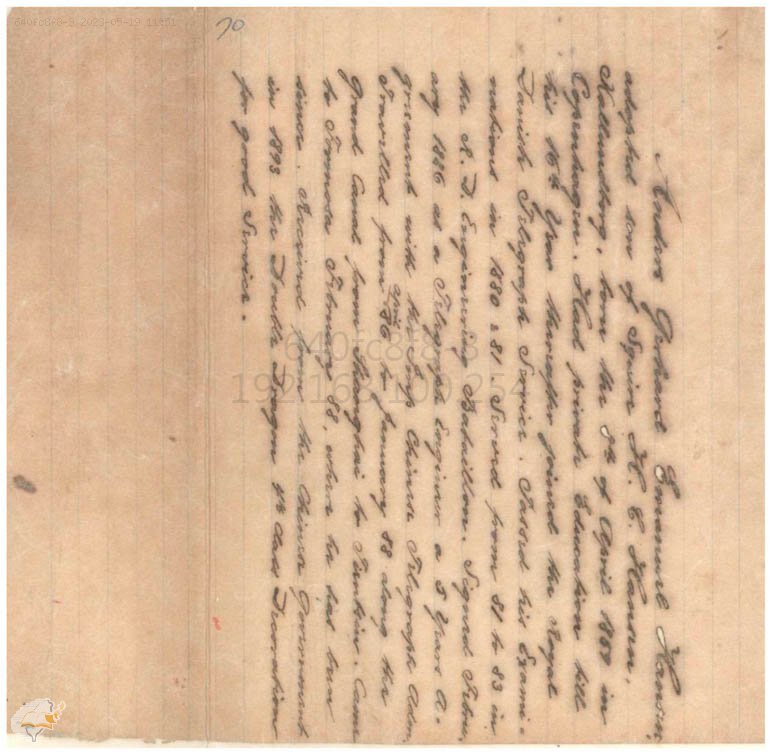 70
Anders Gerhard Emanuel Hansen,
adopted son of Squire H. E. Hansen,
Kallundborg, born the 8th of April 1859 in
Copenhagen. Had private Education till
his 16th Year thereafter joined the Royal
Danish Telegraph Service. Passed his Exami-
nations in 1880 & 81 Served from 81 to 83 in
the R. D. Engineering Bataillon. Signed Febru,
ary 1886 as a Telegraph Engineer a 3 Years A-
greement with the Imp Chinese Telegraph Adm,
Travelled from April 86 to January 88 along the
Grand Canal from Shanghai to Tientsin. Came
to Formosa February 88, where he has been
since. Received from the Chinese Government
in 1893 the Double Dragon 4th Class Decoration
for good Service.
640fc8f8-3 2023-05-19 11:51
640fc8f8-3
192.168.109.254